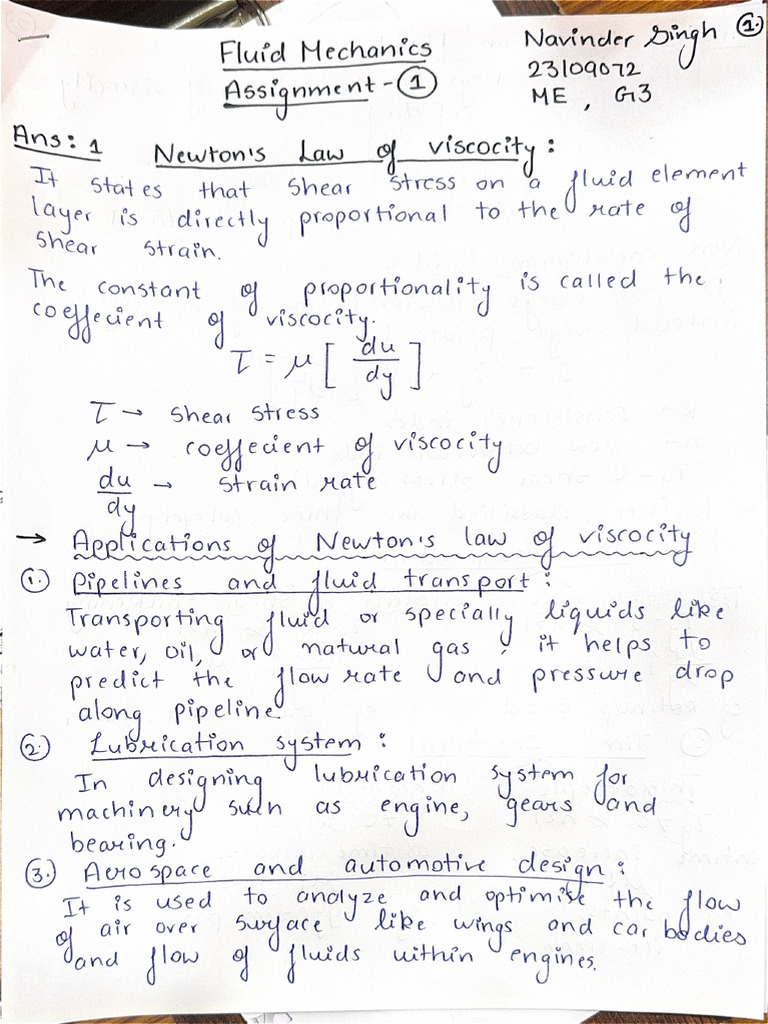 Fluid Mechanics
Assignment - ①
Navinder Singh ①
23109072
ME , G3
Ans: 1 Newton's Law of viscocity :
It states that shear stress on a fluid element
layer is directly proportional to the rate of
shear strain.
The constant of proportionality is called the
coeffecient of viscocity.
τ = μ [ du/dy ]
τ → shear stress
μ → coeffecient of viscocity
du/dy → strain rate
→ Applications of Newton's law of viscocity
① Pipelines and fluid transport :
Transporting fluid or specially liquids like
water, oil, or natural gas, it helps to
predict the flow rate and pressure drop
along pipeline.
② Lubrication system :
In designing lubrication system for
machinery such as engine, gears and
bearing.
③ Aerospace and automotive design :
It is used to analyze and optimise the flow
of air over surface like wings and car bodies
and flow of fluids within engines.